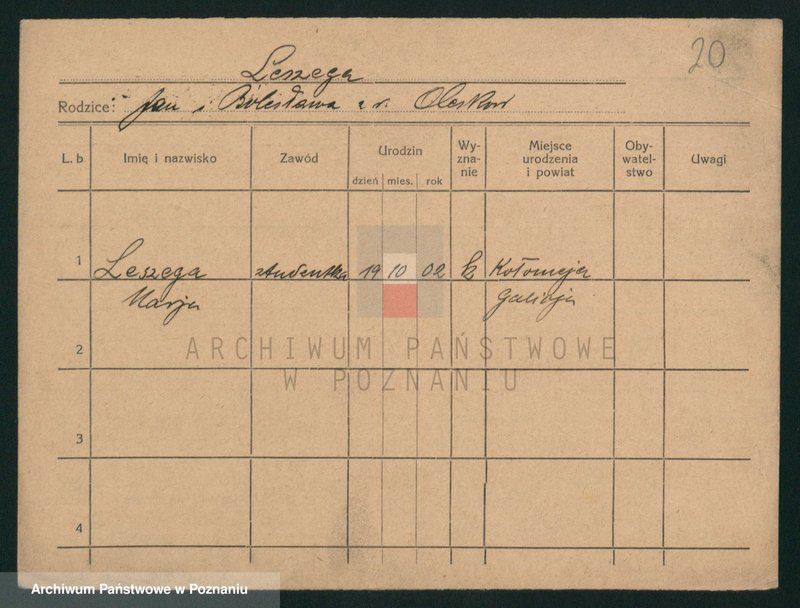 20
Leszega
Rodzice: Jan i Bolesława z d. Oleskow
L. b Imię i nazwisko Zawód Urodzin Wy-zna-nie Miejsce urodzenia i powiat Oby-watel-stwo Uwagi
dzień mies. rok
1 Leszega studentka 19 10 02 k Kołomeja
Marja Galicja
2
ARCHIWUM PAŃSTWOWE
W POZNANIU
3
4
Archiwum Państwowe w Poznaniu